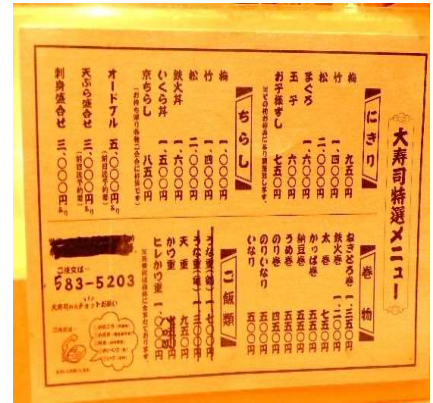 大寿司特選メニュー
にぎり
梅 九五〇円
竹 一.四〇〇円
松 二.〇〇〇円
まぐろ 一.六〇〇円
玉子 六〇〇円
お子様ずし 七五〇円
ちらし
梅 一.〇〇〇円
竹 一.四〇〇円
松 二.〇〇〇円
鉄火丼 一.六〇〇円
いくら丼 一.五〇〇円
京ちらし 八五〇円
オードブル 五.〇〇〇円より
(前日迄予約要)
天ぷら盛合せ 三.〇〇〇円より
(前日迄予約要)
刺身盛合せ 三.〇〇〇円より
巻物
ねぎとろ巻 一.三五〇円
鉄火巻 一.二〇〇円
太巻 七五〇円
かっぱ巻 五五〇円
納豆巻 五五〇円
うめ巻 五五〇円
のり巻 四五〇円
のりいなり 五五〇円
いなり 五五〇円
ご飯類
天重 九五〇円
かつ重
ヒレかつ重
ご注文は…
583-5203
大寿司からチョットお願い